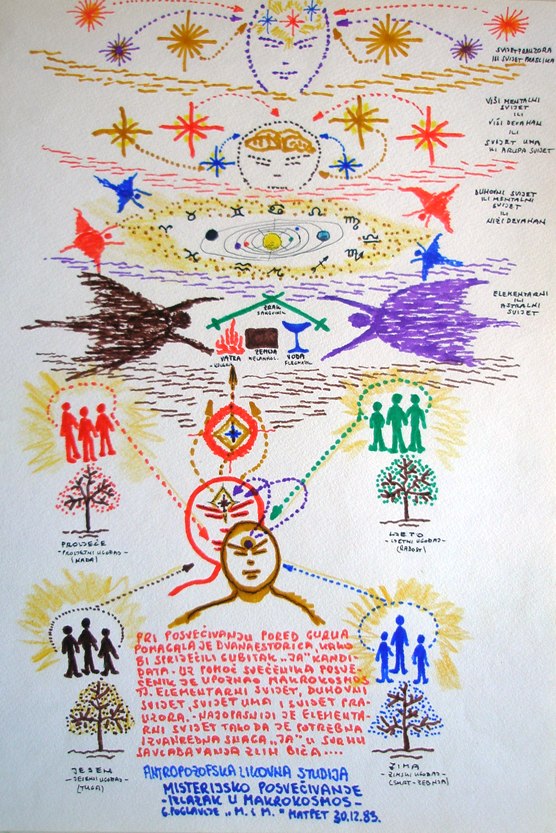 SVIJET PRAUZORA
ILI SVIJET PRASLIKA
VIŠI MENTALNI
SVIJET
ILI
VIŠI DEVAHAN
ILI
SVIJET UMA
ILI ARUPA SVIJET
DUHOVNI SVIJET
ILI MENTALNI
SVIJET
ILI
NIŽI DEVAHAN
ELEMENTARNI
ILI
ASTRALNI
SVIJET
ZRAK
SANGVINIK
VATRA
ZEMLJA
MELANHOL.
VODA
FLEGMATIK
PROLJEĆE
- PROLJETNI UGOĐAJ -
(NADA)
LJETO
- LJETNI UGOĐAJ -
(RADOST)
JESEN
- JESENJI UGOĐAJ -
(TUGA)
ZIMA
- ZIMSKI UGOĐAJ -
(SMRT - ŽEDNJA)
PRI POSVEĆIVANJU PORED GURUA
POMAGALA JE DVANAESTORICA, KAKO
BI SPRIJEČILI GUBITAK „JA" KANDI
DATA. UZ POMOĆ SVEĆENIKA POSVE
ĆENIK JE UPOZNAO MAKROKOSMOS
TJ. ELEMENTARNI SVIJET, DUHOVNI
SVIJET, SVIJET UMA I SVIJET PRA-
UZORA. - NAJOPASNIJI JE ELEMENTA-
RNI SVIJET TAKO DA JE POTREBNA
IZVANREDNA SNAGA „JA" U SVRHU
SAVLADAVANJA ZLIH BIĆA....
ANTROPOZOFSKA LIKOVNA STUDIJA
MISTERIJSKO POSVEĆIVANJE
- IZLAZAK U MAKROKOSMOS -
6. POGLAVLJE „M. i M." MATPET 30.12.83.